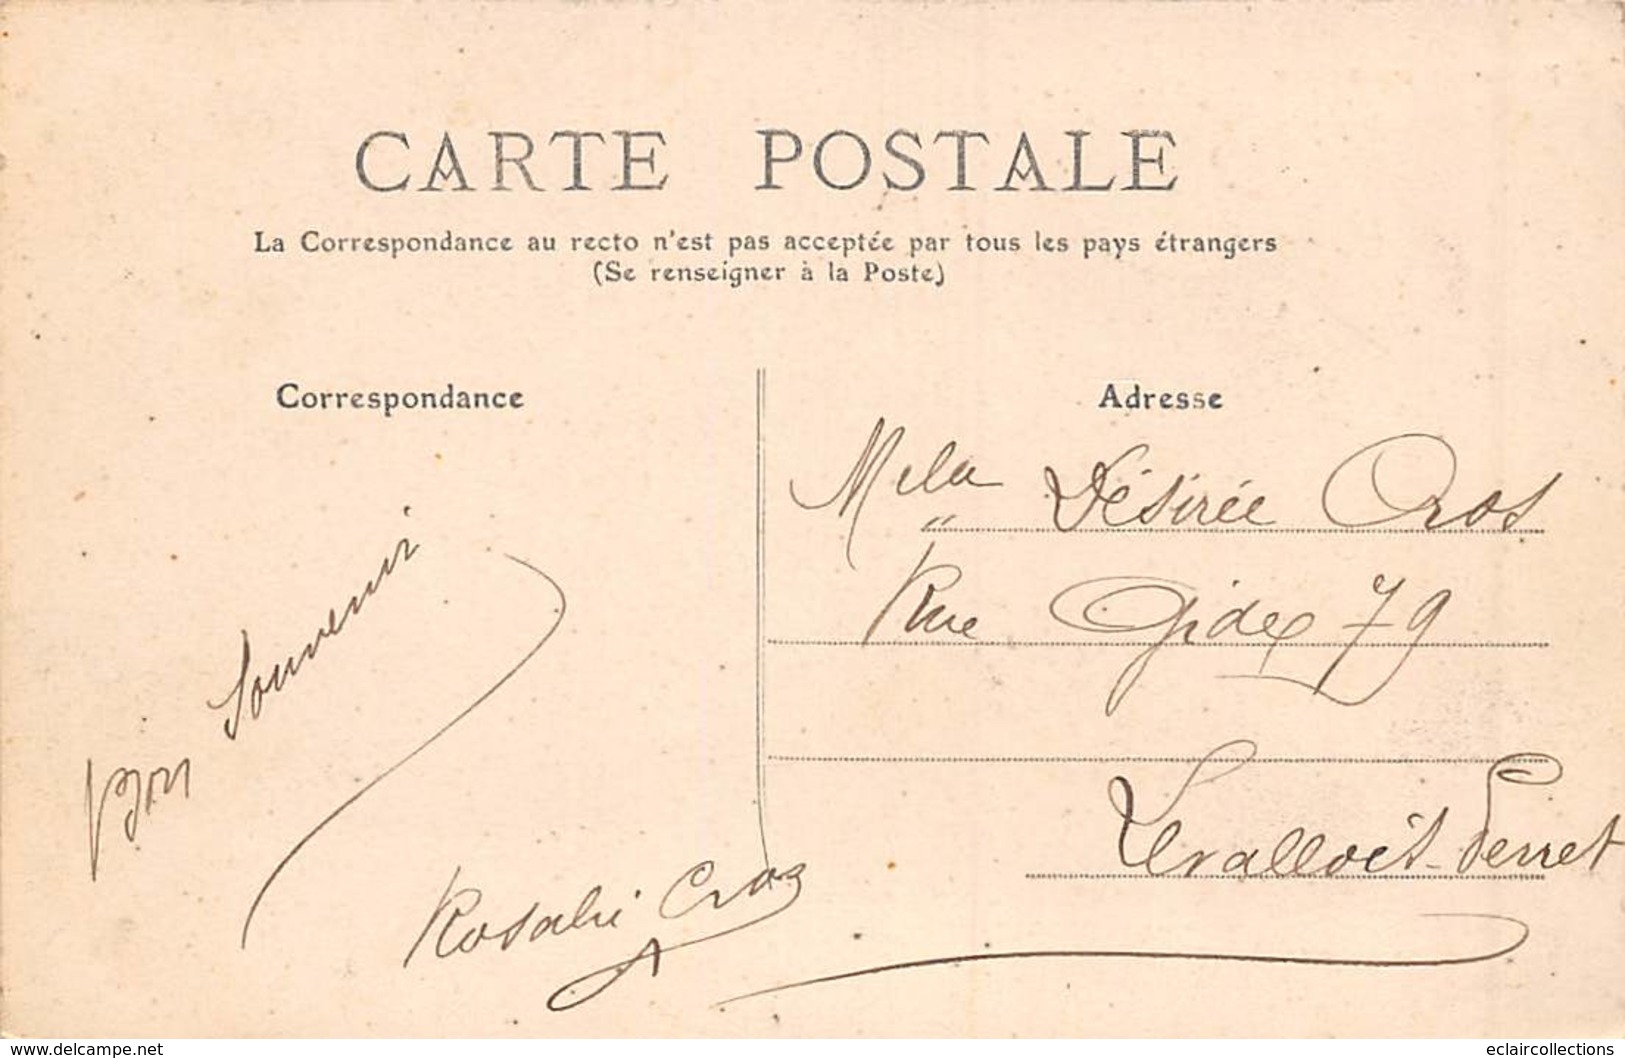 CARTE POSTALE
La Correspondance au recto n'est pas acceptée par tous les pays étrangers
(Se renseigner à la Poste)
Correspondance
Bon Souvenir
Rosalie Cros
Adresse
Désirée Cros
Rue Gidex 79
Levallois-Perret
www.delcampe.net
eclaircollections